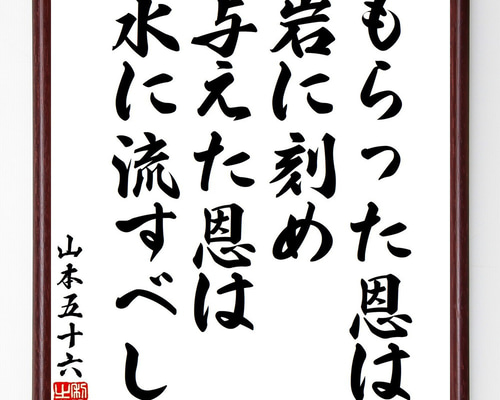 もらった恩は
岩に刻め
与えた恩は
水に流すべし
山本五十六